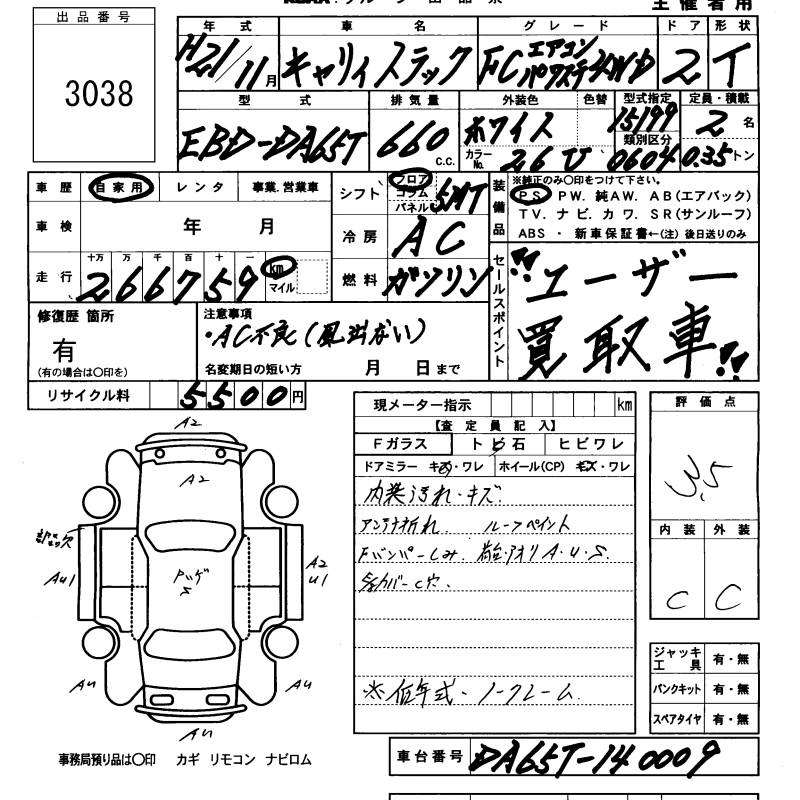 主催者用
出品番号
3038
年式 車名 グレード ドア 形状
H21/11月 キャリィトラック FC エアコン パワステ 4WD 2 T
型式 排気量 外装色 色替 型式指定 定員・積載
EBD-DA65T 660 c.c. ホワイト 15199 2名
カラーNo. 26U 類別区分 0604 0.35トン
車歴 自家用 レンタ 事業.営業車
車検 年 月
走行 十万 万 千 百 十 一
266759 km マイル
シフト フロア コラム パネル 5MT
冷房 AC
燃料 ガソリン
装備品 ※純正のみ〇印をつけて下さい。
PS PW. 純AW. AB(エアバック)
TV. ナビ. カワ. SR(サンルーフ)
ABS ・ 新車保証書←(注) 後日送りのみ
セールスポイント
"ユーザー
買取車"
修復歴 箇所
有
(有の場合は〇印を)
注意事項
・AC不良(風出ない)
名変期日の短い方 月 日まで
リサイクル料 5500円
現メーター指示 km
【査定員記入】
Fガラス トビ石 ヒビワレ
ドアミラー キズ・ワレ ホイール(CP) キズ・ワレ
内装汚れ・キズ.
アンテナ折れ. ルーフペイント
Fバンパーしみ. 荷台・アオリA・U・S.
カバーC穴.
※低年式・ノークレーム.
評価点
3.5
内装 外装
C C
ジャッキ 工具 有・無
パンクキット 有・無
スペアタイヤ 有・無
A2
A2
AU1
A2
U1
S
AU
AU
AU
事務局預り品は〇印 カギ リモコン ナビロム
車台番号 DA65T-140009